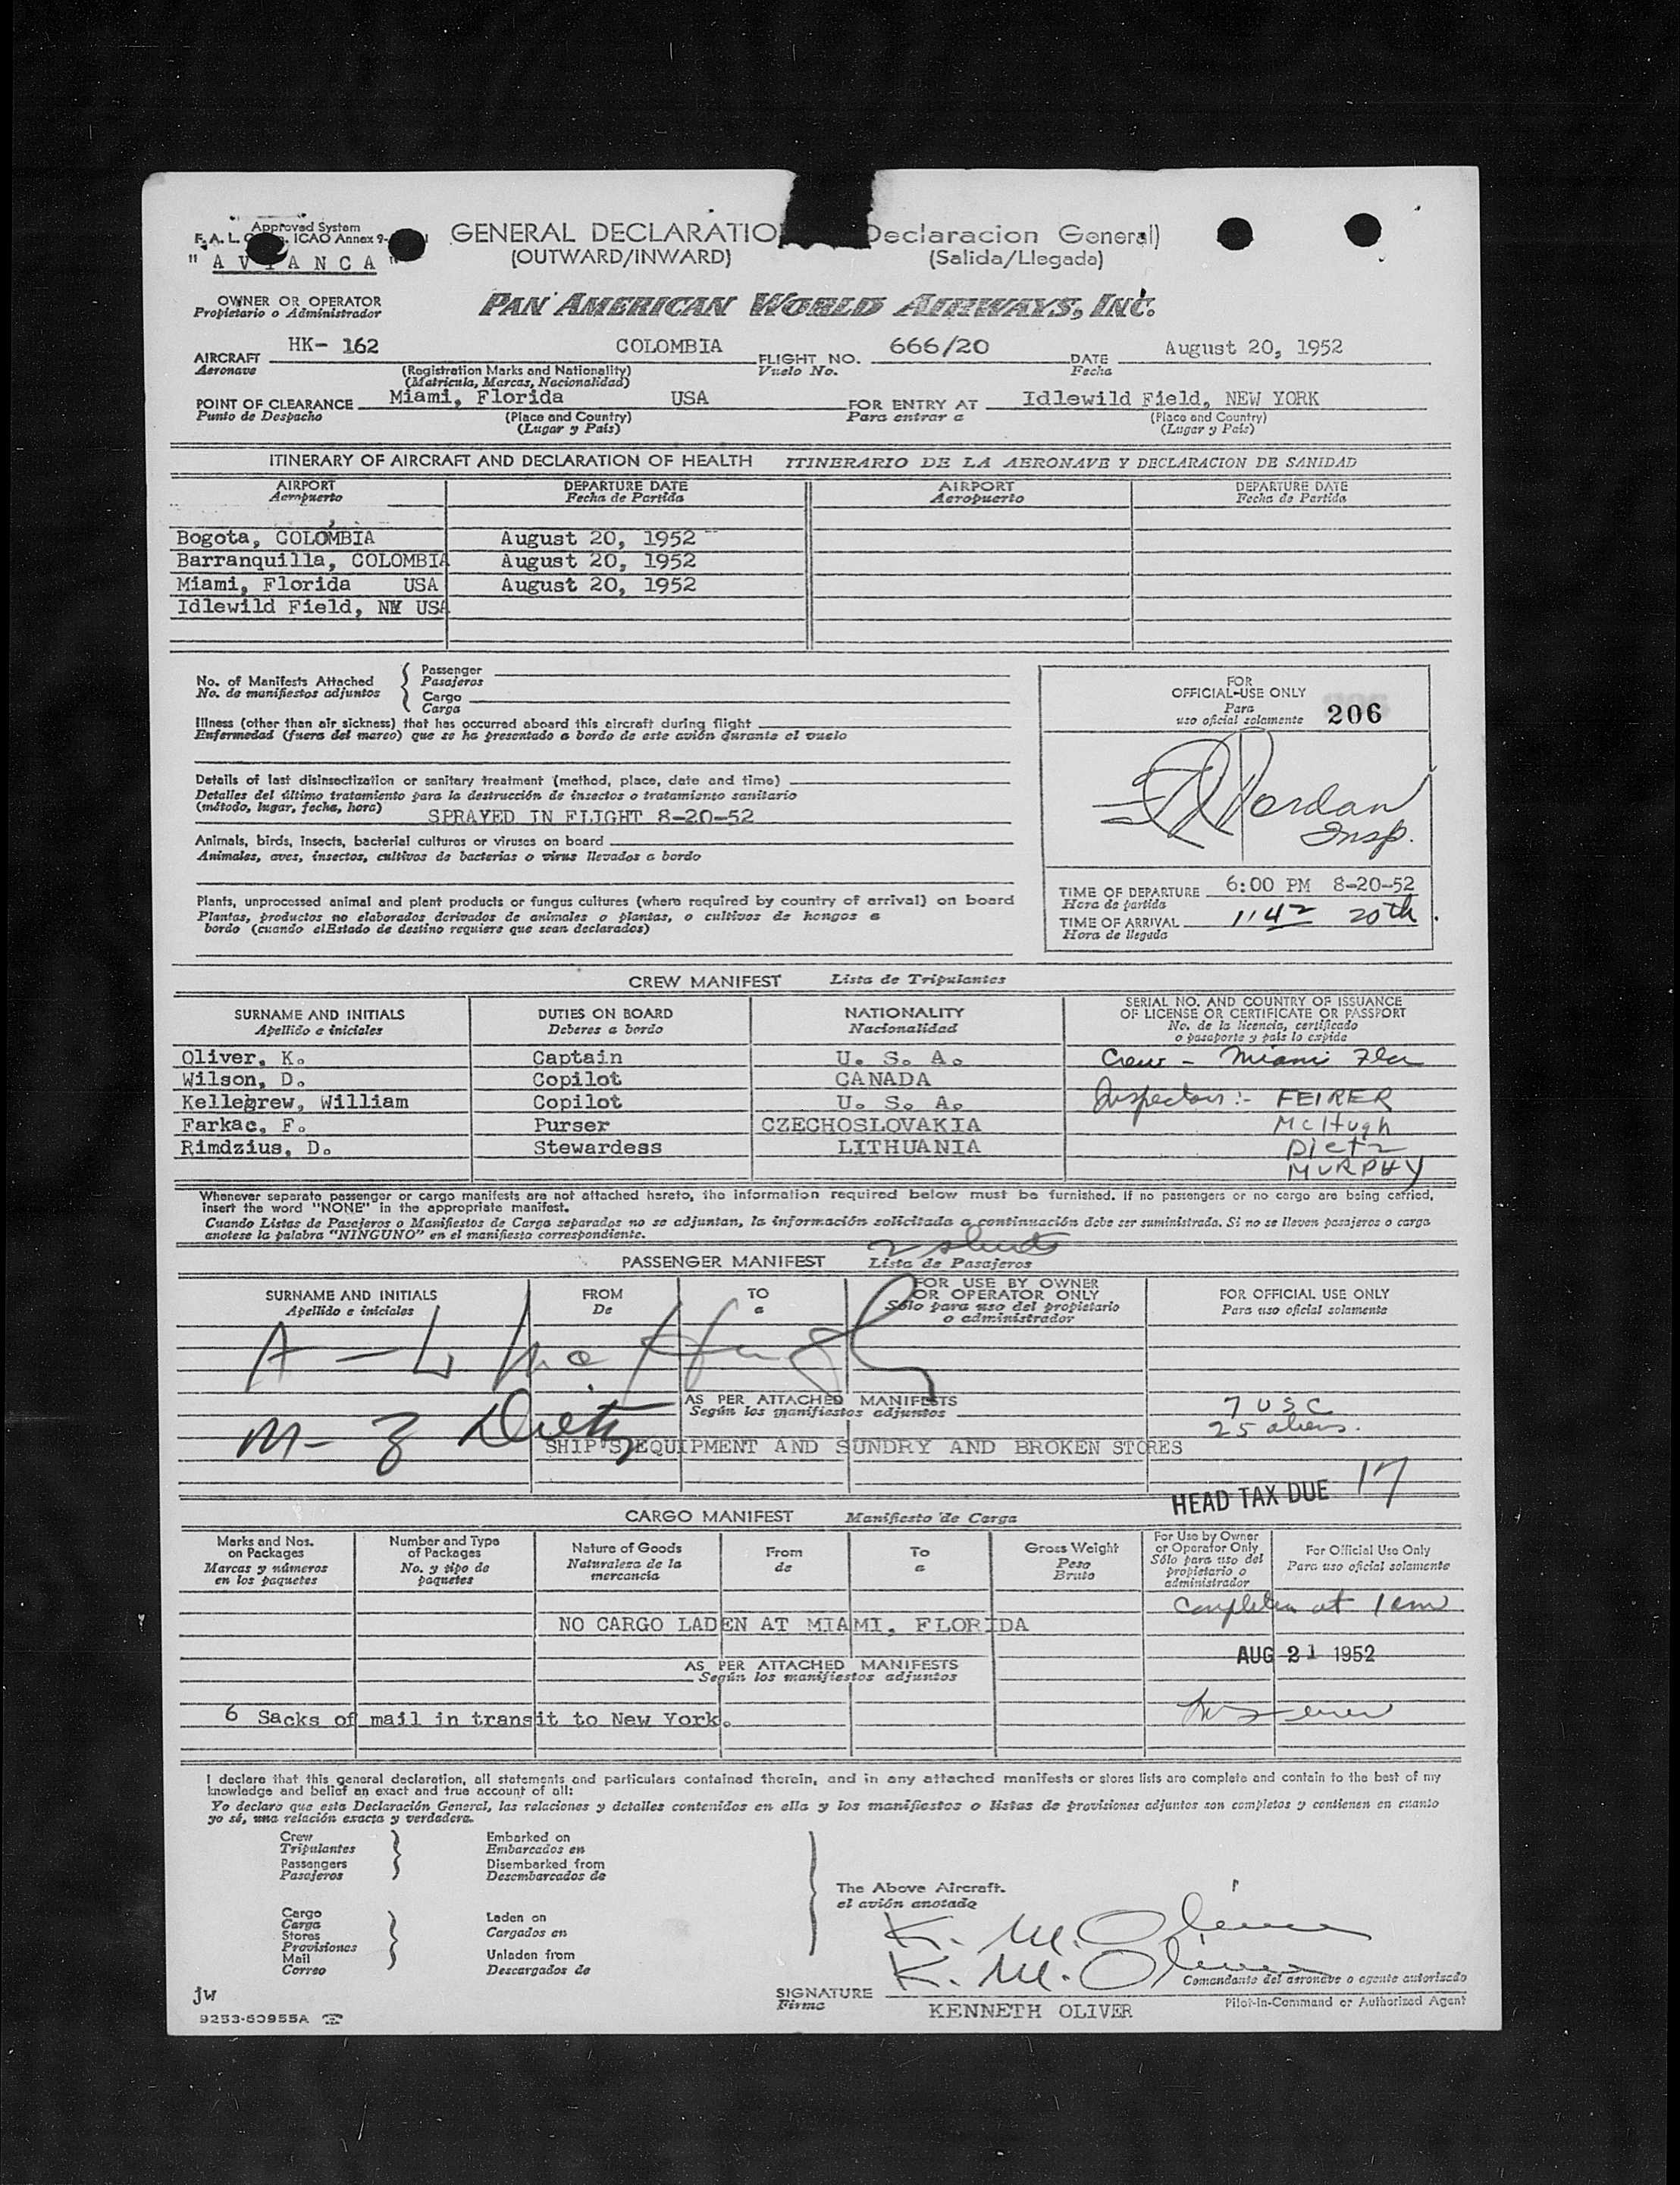 Approved System
F. A. L. ICAO Annex 9-
" AVIANCA "
GENERAL DECLARATIO Declaracion General)
(OUTWARD/INWARD) (Salida/Llegada)
OWNER OR OPERATOR
Propietario o Administrador
PAN AMERICAN WORLD AIRWAYS, INC.
AIRCRAFT HK- 162 COLOMBIA FLIGHT NO. 666/20 DATE August 20, 1952
Aeronave (Registration Marks and Nationality) Vuelo No. Fecha
(Matricula, Marcas, Nacionalidad)
POINT OF CLEARANCE Miami, Florida USA FOR ENTRY AT Idlewild Field, NEW YORK
Punto de Despacho (Place and Country) Para entrar a (Place and Country)
(Lugar y País) (Lugar y País)
ITINERARY OF AIRCRAFT AND DECLARATION OF HEALTH ITINERARIO DE LA AERONAVE Y DECLARACION DE SANIDAD
AIRPORT DEPARTURE DATE AIRPORT DEPARTURE DATE
Aeropuerto Fecha de Partida Aeropuerto Fecha de Partida
Bogota, COLOMBIA August 20, 1952
Barranquilla, COLOMBIA August 20, 1952
Miami, Florida USA August 20, 1952
Idlewild Field, NY USA
No. of Manifests Attached
No. de manifiestos adjuntos
Passenger
Pasajeros
Cargo
Carga
Illness (other than air sickness) that has occurred aboard this aircraft during flight
Enfermedad (fuera del mareo) que se ha presentado a bordo de este avión durante el vuelo
Details of last disinsectization or sanitary treatment (method, place, date and time)
Detalles del último tratamiento para la destrucción de insectos o tratamiento sanitario
(método, lugar, fecha, hora) SPRAYED IN FLIGHT 8-20-52
Animals, birds, insects, bacterial cultures or viruses on board
Animales, aves, insectos, cultivos de bacterias o virus llevados a bordo
Plants, unprocessed animal and plant products or fungus cultures (where required by country of arrival) on board
Plantas, productos no elaborados derivados de animales o plantas, o cultivos de hongos a
bordo (cuando elEstado de destino requiere que sean declarados)
FOR
OFFICIAL-USE ONLY
Para
uso oficial solamente 206
Insp.
TIME OF DEPARTURE 6:00 PM 8-20-52
Hora de partida
TIME OF ARRIVAL 11:42 20th
Hora de llegada
CREW MANIFEST Lista de Tripulantes
SURNAME AND INITIALS DUTIES ON BOARD NATIONALITY SERIAL NO. AND COUNTRY OF ISSUANCE
OF LICENSE OR CERTIFICATE OR PASSPORT
Apellido e iniciales Deberes a bordo Nacionalidad No. de la licencia, certificado
o pasaporte y país lo expide
Oliver, K. Captain U. S. A. Crew - Miami Fla
Wilson, D. Copilot CANADA
Kellegrew, William Copilot U. S. A. Inspectors :- FEIRER
Farkac, F. Purser CZECHOSLOVAKIA McHugh
Rimdzius, D. Stewardess LITHUANIA Dietz
MURPHY
Whenever separate passenger or cargo manifests are not attached hereto, the information required below must be furnished. If no passengers or no cargo are being carried,
insert the word "NONE" in the appropriate manifest.
Cuando Listas de Pasajeros o Manifiestos de Carga separados no se adjuntan, la información solicitada a continuación debe ser suministrada. Si no se lleven pasajeros o carga
anotese la palabra "NINGUNO" en el manifiesto correspondiente.
2 sheets
PASSENGER MANIFEST Lista de Pasajeros
SURNAME AND INITIALS FROM TO FOR USE BY OWNER FOR OFFICIAL USE ONLY
Apellido e iniciales De a OR OPERATOR ONLY Para uso oficial solamente
Sólo para uso del propietario
o administrador
A - L McHugh
AS PER ATTACHED MANIFESTS 7 USC
Según los manifiestos adjuntos 25 aliens.
M- Z Dietz
SHIP'S EQUIPMENT AND SUNDRY AND BROKEN STORES
HEAD TAX DUE 17
CARGO MANIFEST Manifiesto de Carga
Marks and Nos. Number and Type Nature of Goods From To Gross Weight For Use by Owner For Official Use Only
on Packages of Packages Naturaleza de la de a Peso or Operator Only Para uso oficial solamente
Marcas y números No. y tipo de mercancía Bruto Sólo para uso del
en los paquetes paquetes propietario o
administrador
NO CARGO LADEN AT MIAMI, FLORIDA
AUG 21 1952
AS PER ATTACHED MANIFESTS
Según los manifiestos adjuntos
6 Sacks of mail in transit to New York.
I declare that this general declaration, all statements and particulars contained therein, and in any attached manifests or stores lists are complete and contain to the best of my
knowledge and belief an exact and true account of all:
Yo declaro que esta Declaración General, las relaciones y detalles contenidos en ella y los manifiestos o listas de provisiones adjuntos son completos y contienen en cuanto
yo sé, una relación exacta y verdadera.
Crew Embarked on
Tripulantes Embarcados en
Passengers Disembarked from
Pasajeros Desembarcados de
The Above Aircraft.
el avión anotado
Cargo Laden on
Carga Cargados en
Stores
Provisiones
Mail Unladen from
Correo Descargados de
K. M. Oliver
K. M. Oliver
Comandante del aeronave o agente autorizado
SIGNATURE
Firma
KENNETH OLIVER Pilot-in-Command or Authorized Agent
jw
9253-60955A